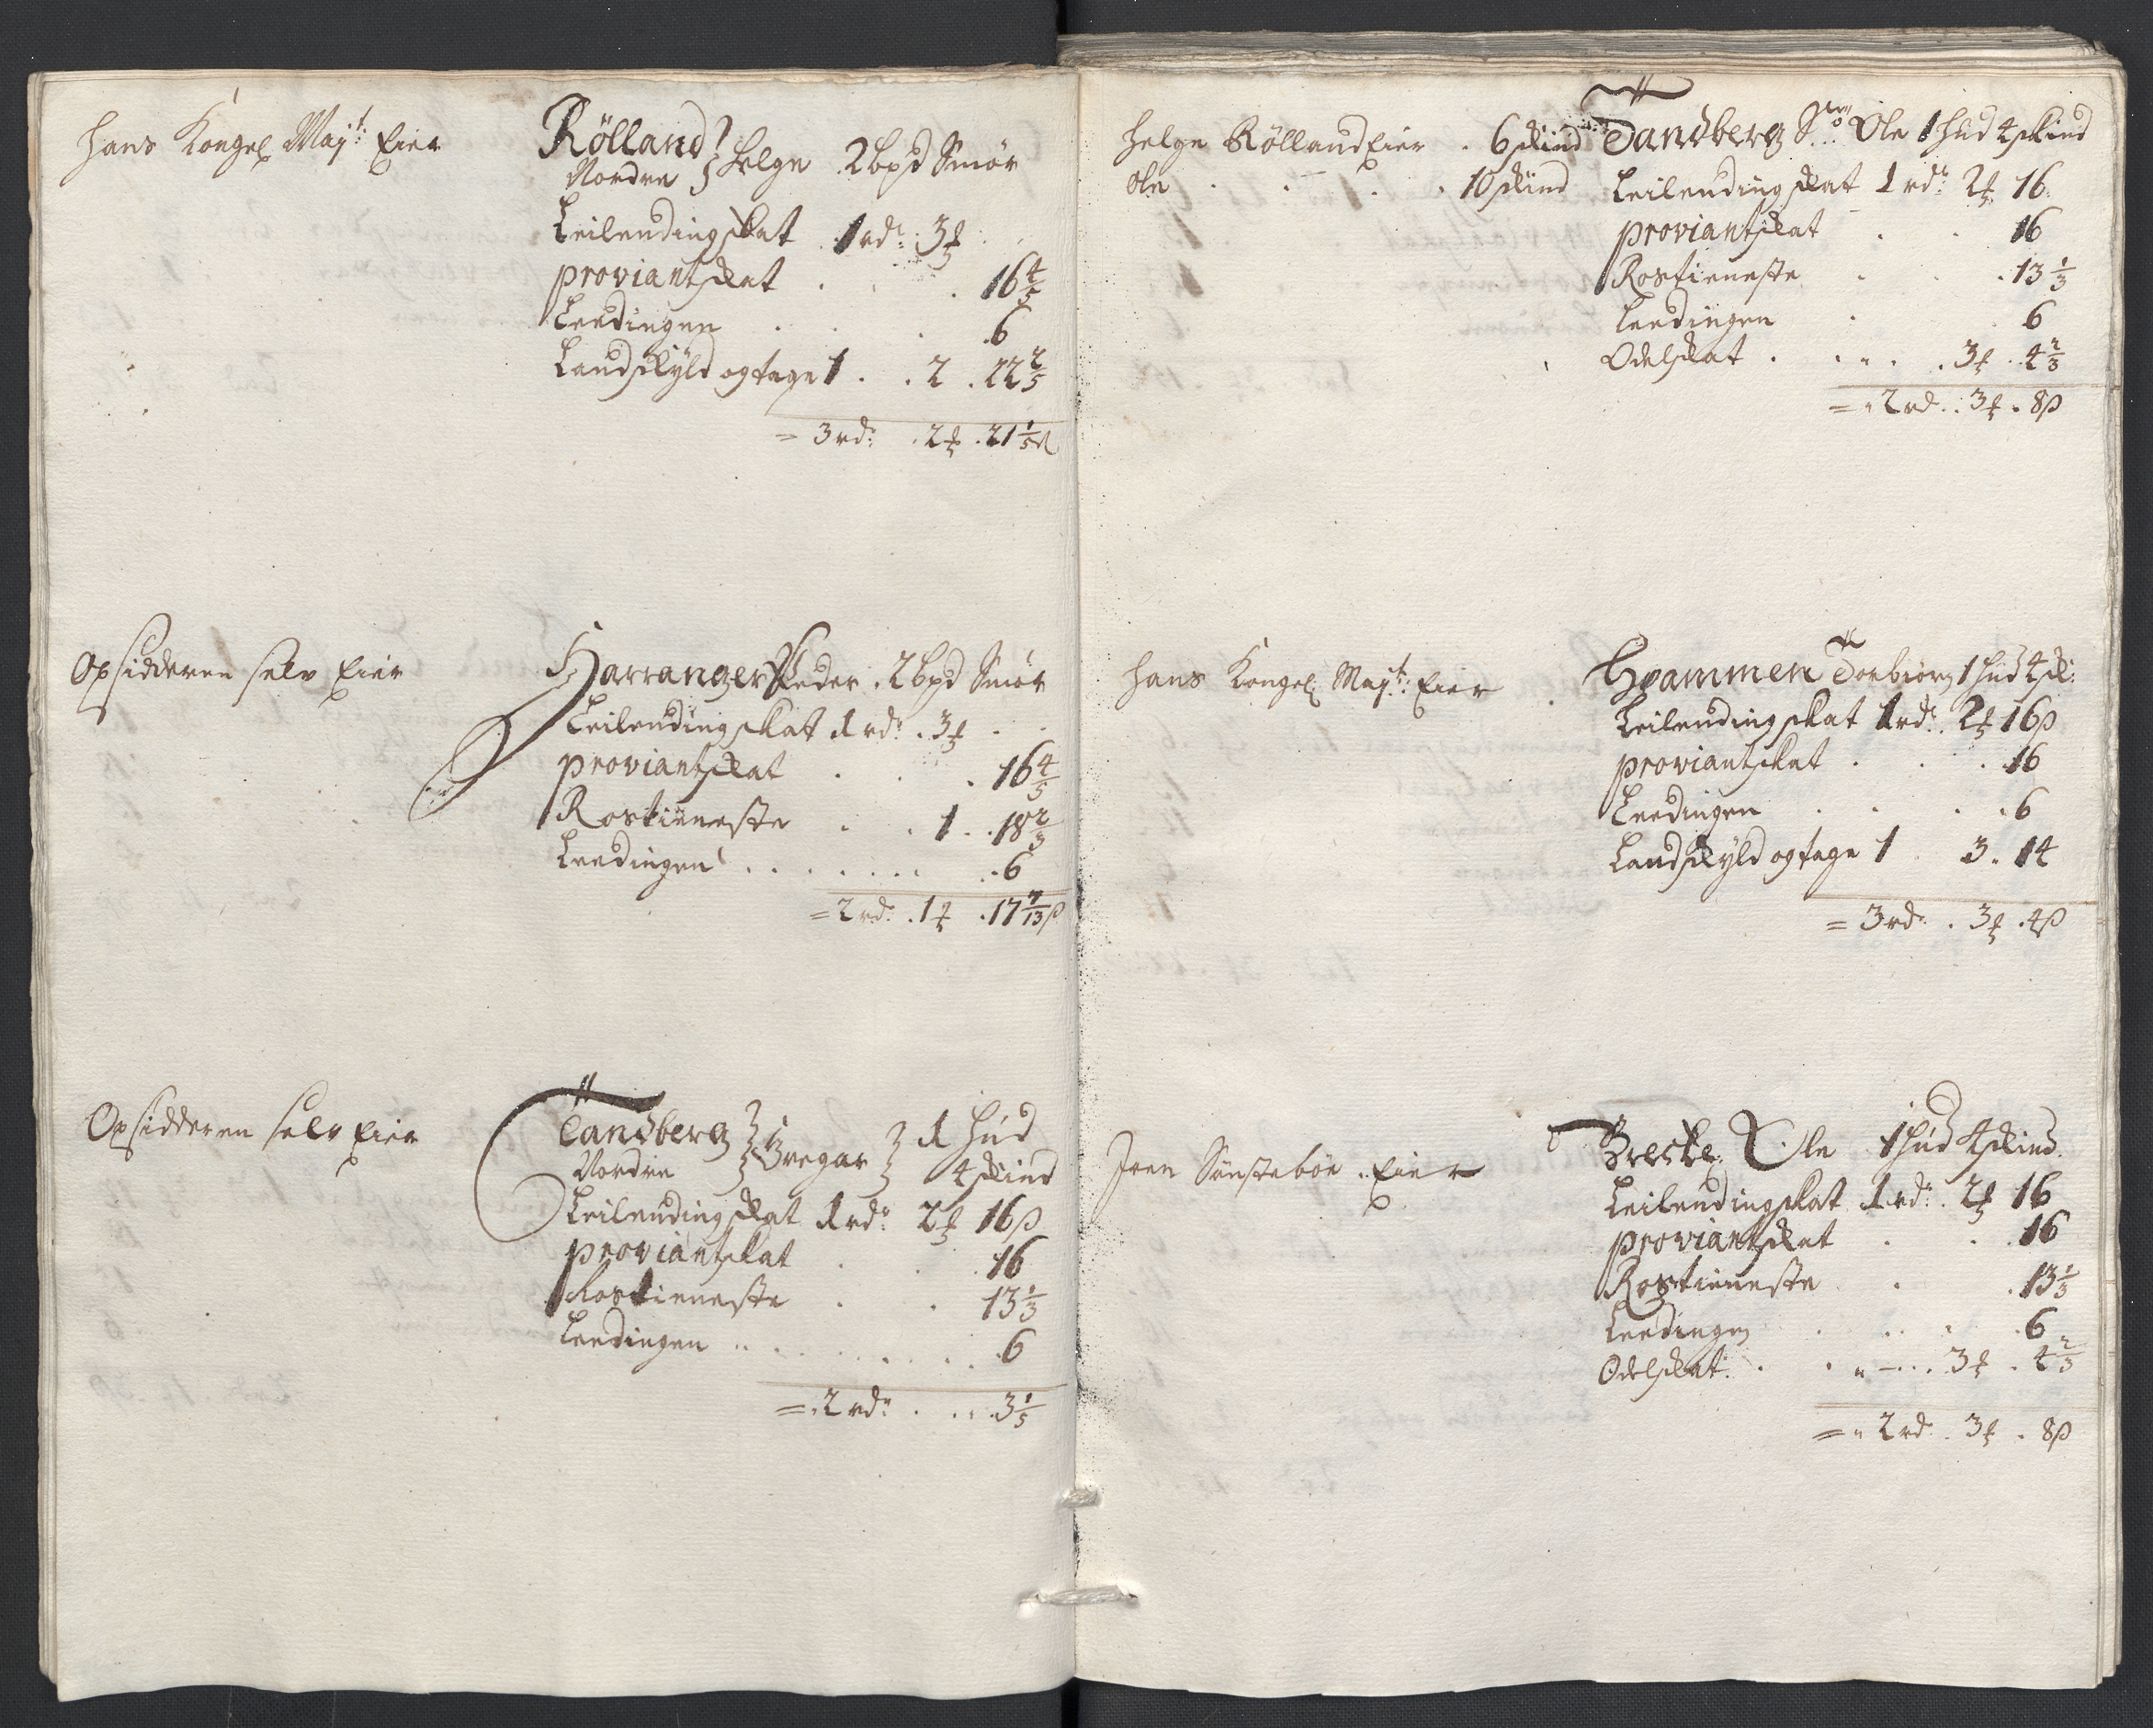 Hans Kongel Maÿt: Eier
Rölland
Nordre } Helge 2 bpd Smör
Leilendingskat 1 rd: 3 ß
proviantskat . . 16 4/5
Leedingen . . . 6
Landskÿld og tage 1 . . 2 . 22 2/5
= 3 rd: . 2 ß . 21 1/5 ß
Opsidderen selv Eier
Harranger Peder . 2 bpd Smör
Leilendingskat 1 rd: . 3 ß . .
proviantskat . . . 16 4/5
Rostieneste . . 1 . . 18 2/3
Leedingen . . . . . . . . 6
= 2 rd: . 1 ß . 17 7/13 ß
Opsidderen selv Eier
Tandberg } Gregar } 1 Hud
Nordre 4 skind
Leilendingskat 1 rd: 2 ß 16 ß
proviantskat . . . 16
Rostieneste . . 13 1/3
Leedingen . . . . . . . . 6
= . 2 rd: . . . . 3 1/5
Helge Rölland Eier . 6 skind
Ole . . . . 10 skind
Tandberg S: Ole 1 Hud 4 skind
Leilendingskat 1 rd: 2 ß 16
proviantskat . . 16
Rostieneste . . 13 1/3
Leedingen . 6
Odelskat . . . . . 3 ß . 4 2/3
= " 2 rd . . 3 ß . 8 ß
Hans Kongel Maÿt: Eier
Hvammen Torbiorn 1 Hud 4 sk:
Leilendingskat 1 rd: 2 ß 16 ß
proviantskat . . . 16
Leedingen . . . . 6
Landskÿld og tage 1 3 . 14
= 3 rd: . 3 ß . 4 ß
Joen Sönstebön . Eier
Brecke . Ole 1 Hud 4 skind.
Leilendingskat 1 rd: . 2 ß 16
proviantskat . . . 16
Rostieneste . . 13 1/3
Leedingen . . . . 6
Odelskat . . . " - . . . 3 ß . 4 2/3
= " 2 rd . 3 ß . 8 ß